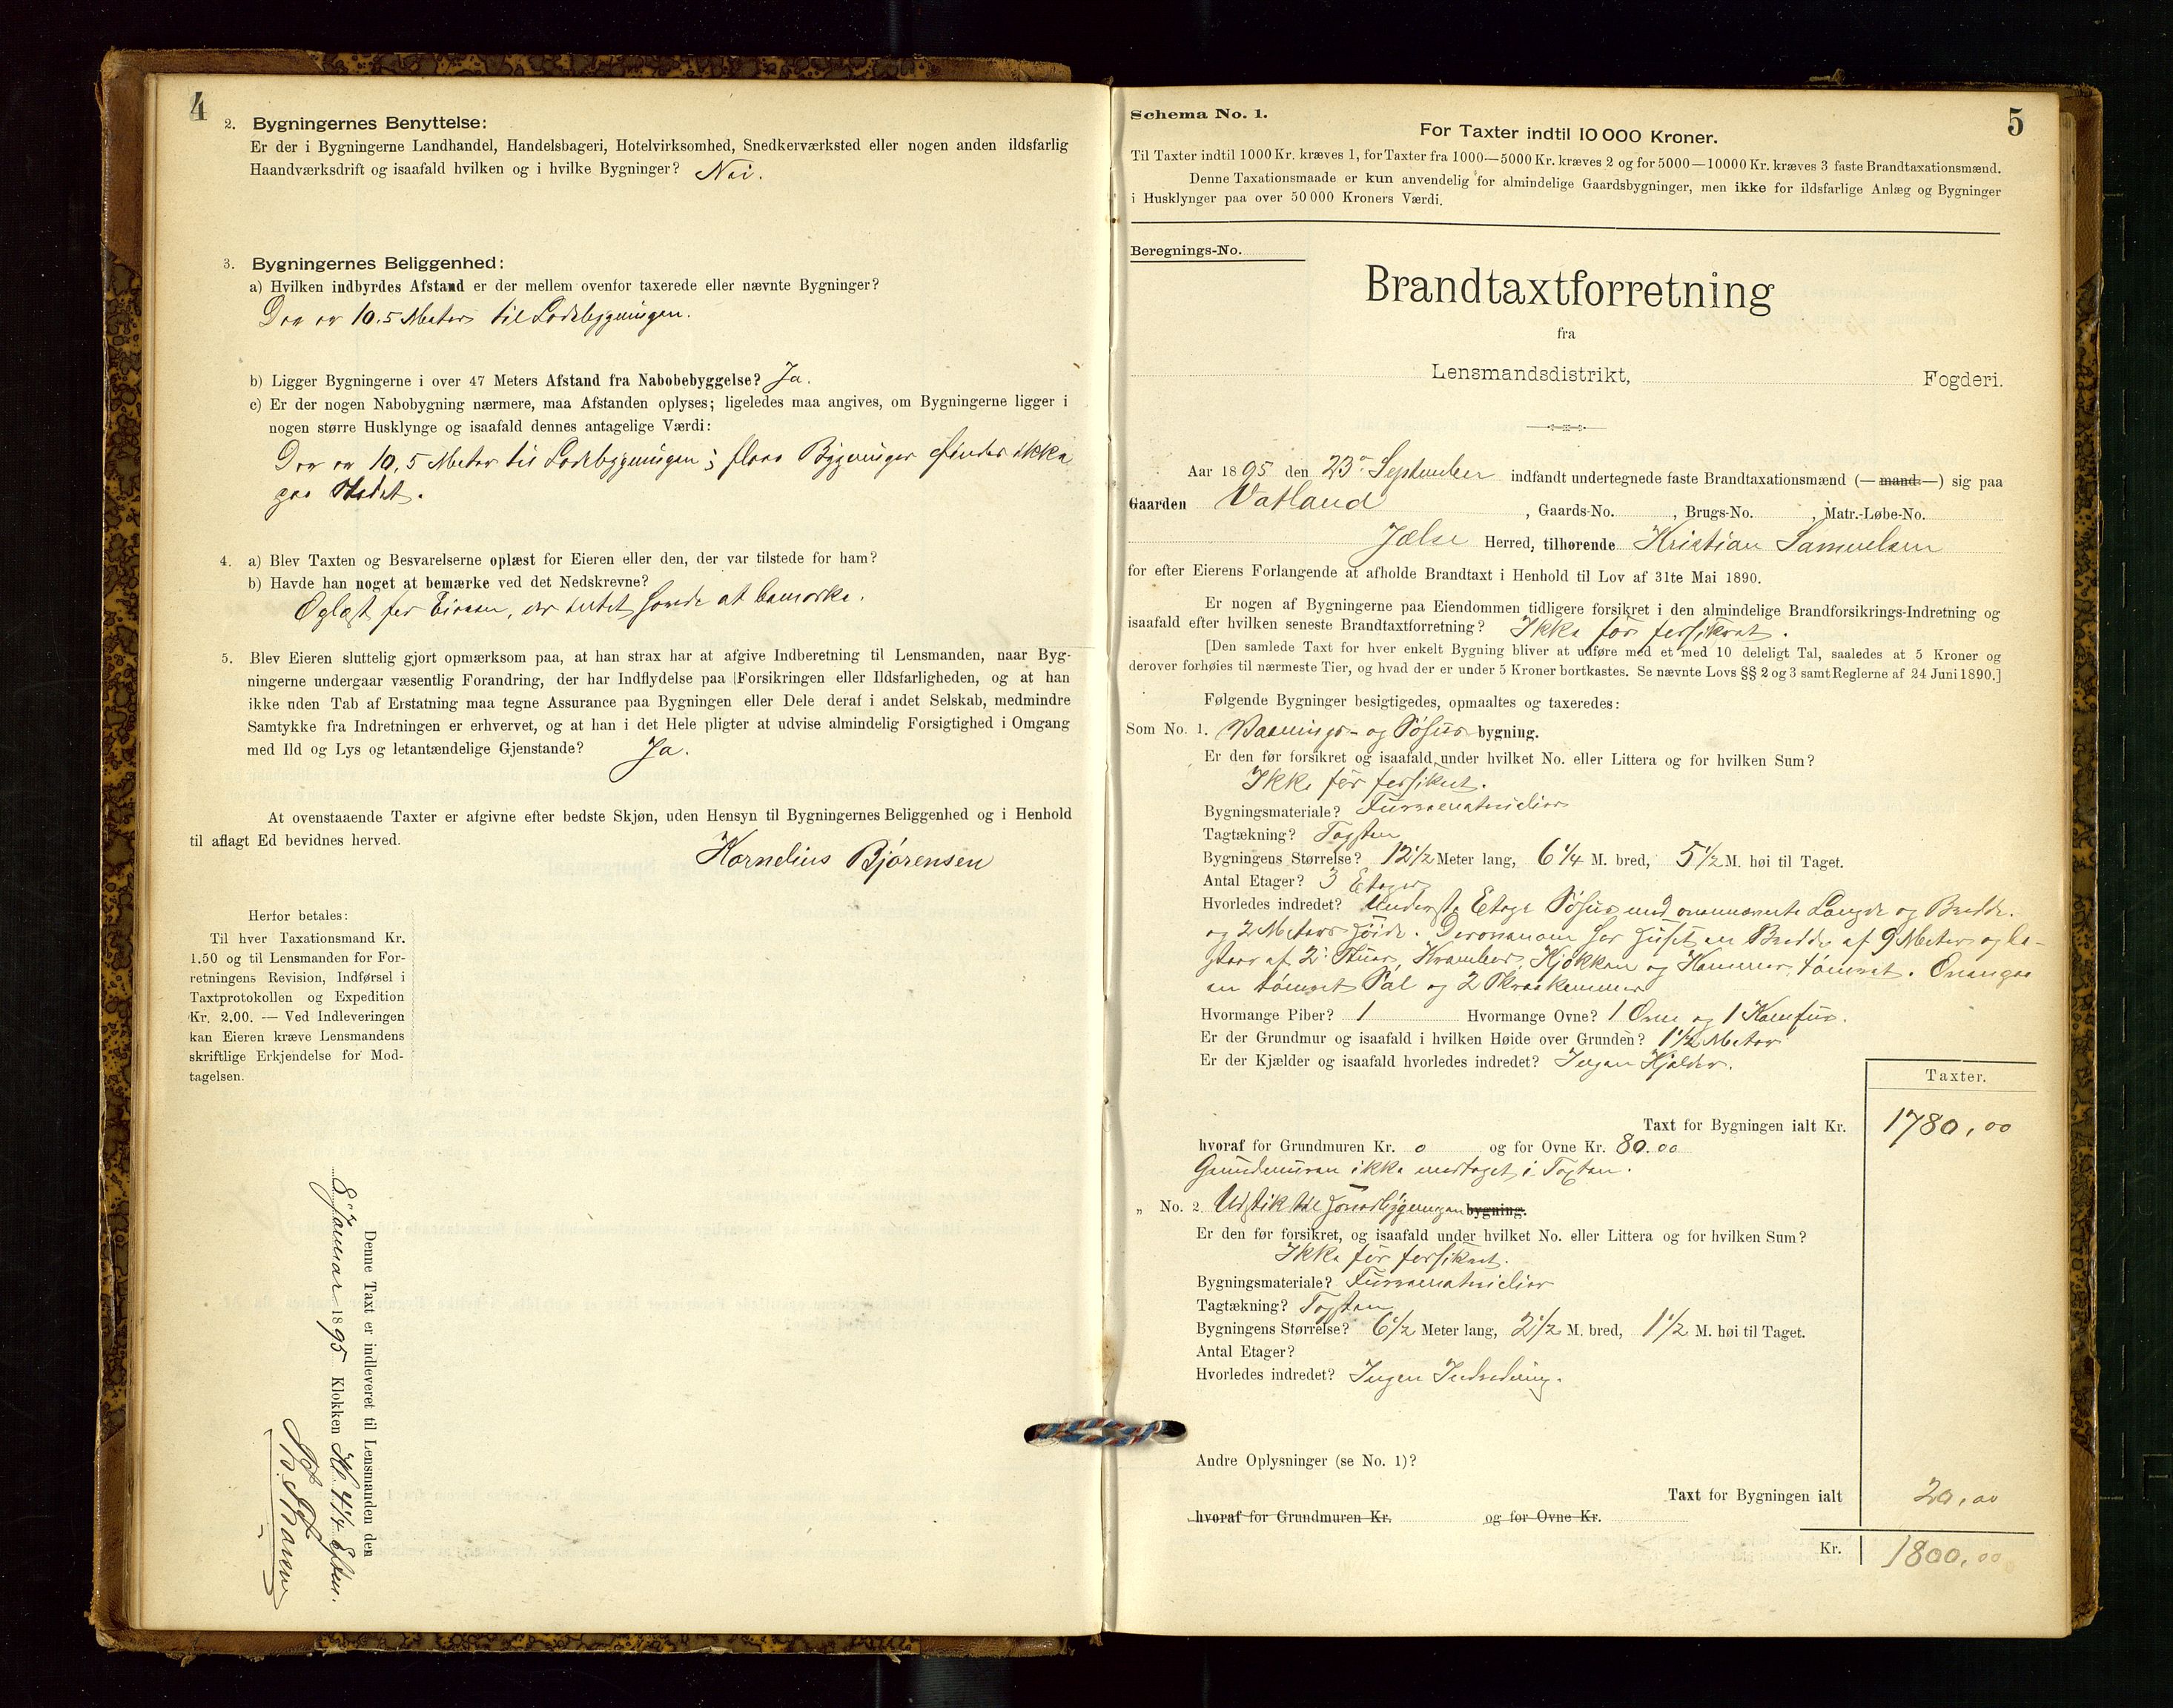 4
2. Bygningernes Benyttelse:
Er der i Bygningerne Landhandel, Handelsbageri, Hotelvirksomhed, Snedkerværksted eller nogen anden ildsfarlig
Haandværksdrift og isaafald hvilken og i hvilke Bygninger? Nei.
3. Bygningernes Beliggenhed:
a) Hvilken indbyrdes Afstand er der mellem ovenfor taxerede eller nævnte Bygninger?
Der er 10,5 Meter til Ladebygningen.
b) Ligger Bygningerne i over 47 Meters Afstand fra Nabobebyggelse? Ja.
c) Er der nogen Nabobygning nærmere, maa Afstanden oplyses; ligeledes maa angives, om Bygningerne ligger i
nogen større Husklynge og isaafald dennes antagelige Værdi:
Der er 10,5 Meter til Ladebygningen; flere Bygninger findes ikke
paa Stedet.
4. a) Blev Taxten og Besvarelserne oplæst for Eieren eller den, der var tilstede for ham?
b) Havde han noget at bemærke ved det Nedskrevne?
Oplæst for Eieren, der intet havde at bemærke.
5. Blev Eieren sluttelig gjort opmærksom paa, at han strax har at afgive Indberetning til Lensmanden, naar Byg-
ningerne undergaar væsentlig Forandring, der har Indflydelse paa Forsikringen eller Ildsfarligheden, og at han
ikke uden Tab af Erstatning maa tegne Assurance paa Bygningen eller Dele deraf i andet Selskab, medmindre
Samtykke fra Indretningen er erhvervet, og at han i det Hele pligter at udvise almindelig Forsigtighed i Omgang
med Ild og Lys og letantændelige Gjenstande? Ja.
At ovenstaaende Taxter er afgivne efter bedste Skjøn, uden Hensyn til Bygningernes Beliggenhed og i Henhold
til aflagt Ed bevidnes herved.
Kornelius Bjørensen
Herfor betales:
Til hver Taxationsmand Kr.
1.50 og til Lensmanden for For-
retningens Revision, Indførsel i
Taxtprotokollen og Expedition
Kr. 2.00. — Ved Indleveringen
kan Eieren kræve Lensmandens
skriftlige Erkjendelse for Mod-
tagelsen.
Denne Taxt er indleveret til Lensmanden den
8 Januar 1895 Klokken Kl. 4 1/4 Efter.
5
Schema No. 1.
For Taxter indtil 10 000 Kroner.
Til Taxter indtil 1000 Kr. kræves 1, for Taxter fra 1000—5000 Kr. kræves 2 og for 5000—10000 Kr. kræves 3 faste Brandtaxationsmænd.
Denne Taxationsmaade er kun anvendelig for almindelige Gaardsbygninger, men ikke for ildsfarlige Anlæg og Bygninger
i Husklynger paa over 50 000 Kroners Værdi.
Beregnings-No.
Brandtaxtforretning
fra
Lensmandsdistrikt, Fogderi.
Aar 1895 den 23 September indfandt undertegnede faste Brandtaxationsmænd (— mand —) sig paa
Gaarden Vatland, Gaards-No. , Brugs-No. , Matr.-Løbe-No.
Jælse Herred, tilhørende Kristian Samuelsen
for efter Eierens Forlangende at afholde Brandtaxt i Henhold til Lov af 31te Mai 1890.
Er nogen af Bygningerne paa Eiendommen tidligere forsikret i den almindelige Brandforsikrings-Indretning og
isaafald efter hvilken seneste Brandtaxtforretning? Ikke før forsikret.
[Den samlede Taxt for hver enkelt Bygning bliver at udføre med et med 10 deleligt Tal, saaledes at 5 Kroner og
derover forhøies til nærmeste Tier, og hvad der er under 5 Kroner bortkastes. Se nævnte Lovs §§ 2 og 3 samt Reglerne af 24 Juni 1890.]
Følgende Bygninger besigtigedes, opmaaltes og taxeredes:
Som No. 1. Vaanings- og Søhus bygning.
Er den før forsikret og isaafald under hvilket No. eller Littera og for hvilken Sum?
Ikke før forsikret.
Bygningsmateriale? Furrematerialier
Tagtækning? Tagsten
Bygningens Størrelse? 12 1/2 Meter lang, 6 1/4 M. bred, 5 1/2 M. høi til Taget.
Antal Etager? 3 Etager
Hvorledes indredet? Underste Etage Søhus med ovennævnte Længde og Bredde.
og 2 Meters Høide. Derovenom har Huset en Bredde af 9 Meter og be-
staar af 2 Stuer, Krambod, Kjøkken og Kammer, tømret. Ovenpaa
en tømret Sal og 2 Skraakammer
Hvormange Piber? 1 Hvormange Ovne? 1 Ovn og 1 Komfur.
Er der Grundmur og isaafald i hvilken Høide over Grunden? 1 1/2 Meter
Er der Kjælder og isaafald hvorledes indredet? Ingen Kjælder.
Taxter.
Taxt for Bygningen ialt Kr. 1780,00
hvoraf for Grundmuren Kr. 0 og for Ovne Kr. 80.00
Grundmuren ikke medtaget i Taxten.
" No. 2 Udstik til Hovedbygningen bygning.
Er den før forsikret, og isaafald under hvilket No. eller Littera og for hvilken Sum?
Ikke før forsikret.
Bygningsmateriale? Furrematerialier
Tagtækning? Tagsten
Bygningens Størrelse? 6 1/2 Meter lang, 2 1/2 M. bred, 1 1/2 M. høi til Taget.
Antal Etager?
Hvorledes indredet? Ingen Indredning.
Andre Oplysninger (se No. 1)?
Taxt for Bygningen ialt 20,00
hvoraf for Grundmuren Kr. og for Ovne Kr.
Kr. 1800,00